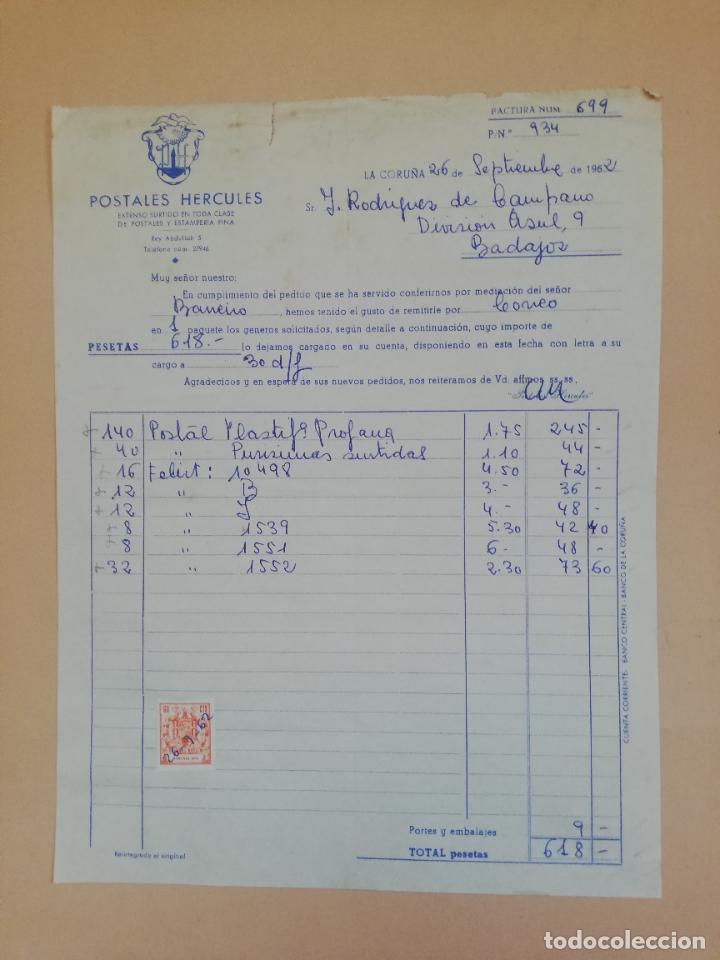 FACTURA NUM 699
P/Nº 934
POSTALES HERCULES
EXTENSO SURTIDO EN TODA CLASE
DE POSTALES Y ESTAMPERIA FINA
Rey Abdullah 5
Teléfono núm. 27946
LA CORUÑA 26 de Septiembre de 1962
Sr. J. Rodriguez de Campano
División Azul, 9
Badajoz
Muy señor nuestro:
En cumplimiento del pedido que se ha servido conferirnos por mediación del señor
, hemos tenido el gusto de remitirle por Correo
en 1 paquete los generos solicitados, según detalle a continuación, cuyo importe de
PESETAS 618.- lo dejamos cargado en su cuenta, disponiendo en esta fecha con letra a su
cargo a 30 d/f
Agradecidos y en espera de sus nuevos pedidos, nos reiteramos de Vd. affmos. ss. ss.,
"Postales Hercules"
140 Postal Plastifª Profana 1.75 245 -
40 " Purisimas surtidas 1.10 44 -
16 Felicit: 10498 4.50 72 -
12 " B 3.- 36 -
12 " J 4.- 48 -
8 " 1539 5.30 42 40
8 " 1551 6- 48 -
32 " 1552 2.30 73 60
26-9-62
Portes y embalajes 9 -
TOTAL pesetas 618 -
Reintegrado el original
CUENTA CORRIENTE: BANCO CENTRAL - BANCO DE LA CORUÑA
todocoleccion